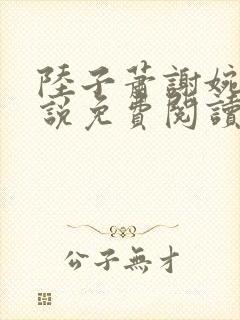 陸子蕭謝婉
說免費閱讀
公子無才